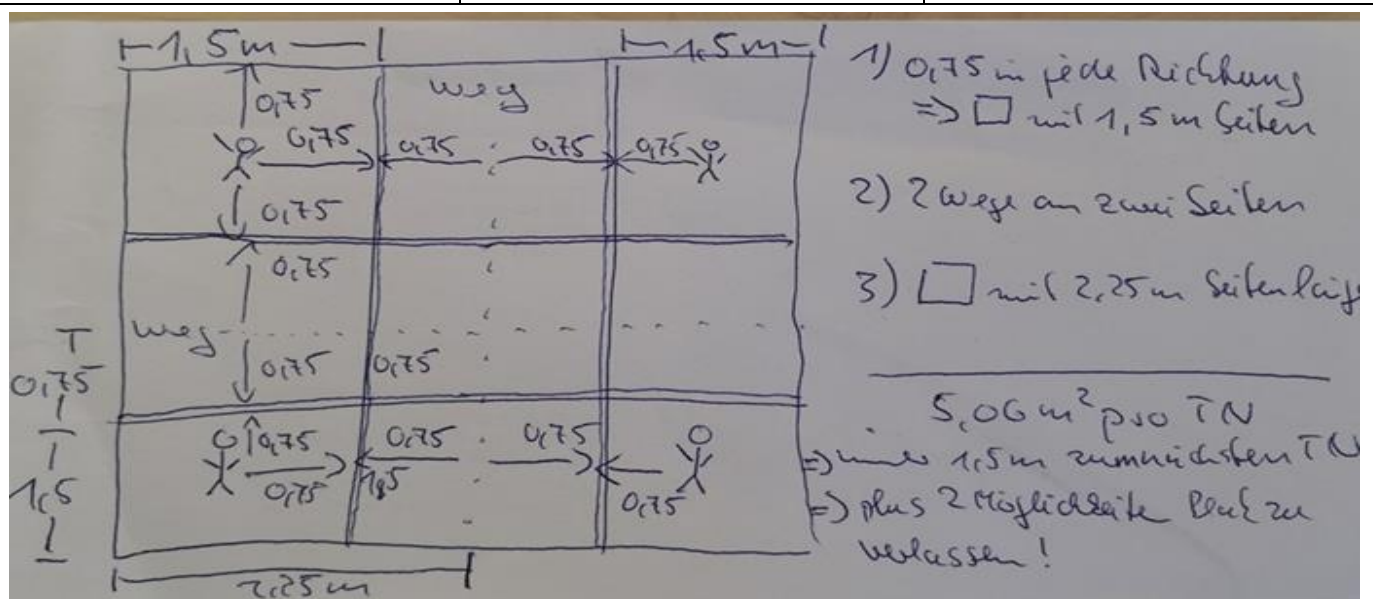 1,5m 1,5m
0,75 weg
0,75 0,75 0,75 0,75
0,75
0,75
weg
0,75 0,75 0,75
0,75 0,75 0,75
1,5 0,75 1,5 0,75
2,25m
1) 0,75 in jede Richtung
=> □ mit 1,5m Seiten
2) 2 Wege an zwei Seiten
3) □ mit 2,25m Seitenläng
5,06m² pro TN
=> 1,5m zum nächsten TN
=> plus 2 Möglichkeite Platz zu
verlassen!